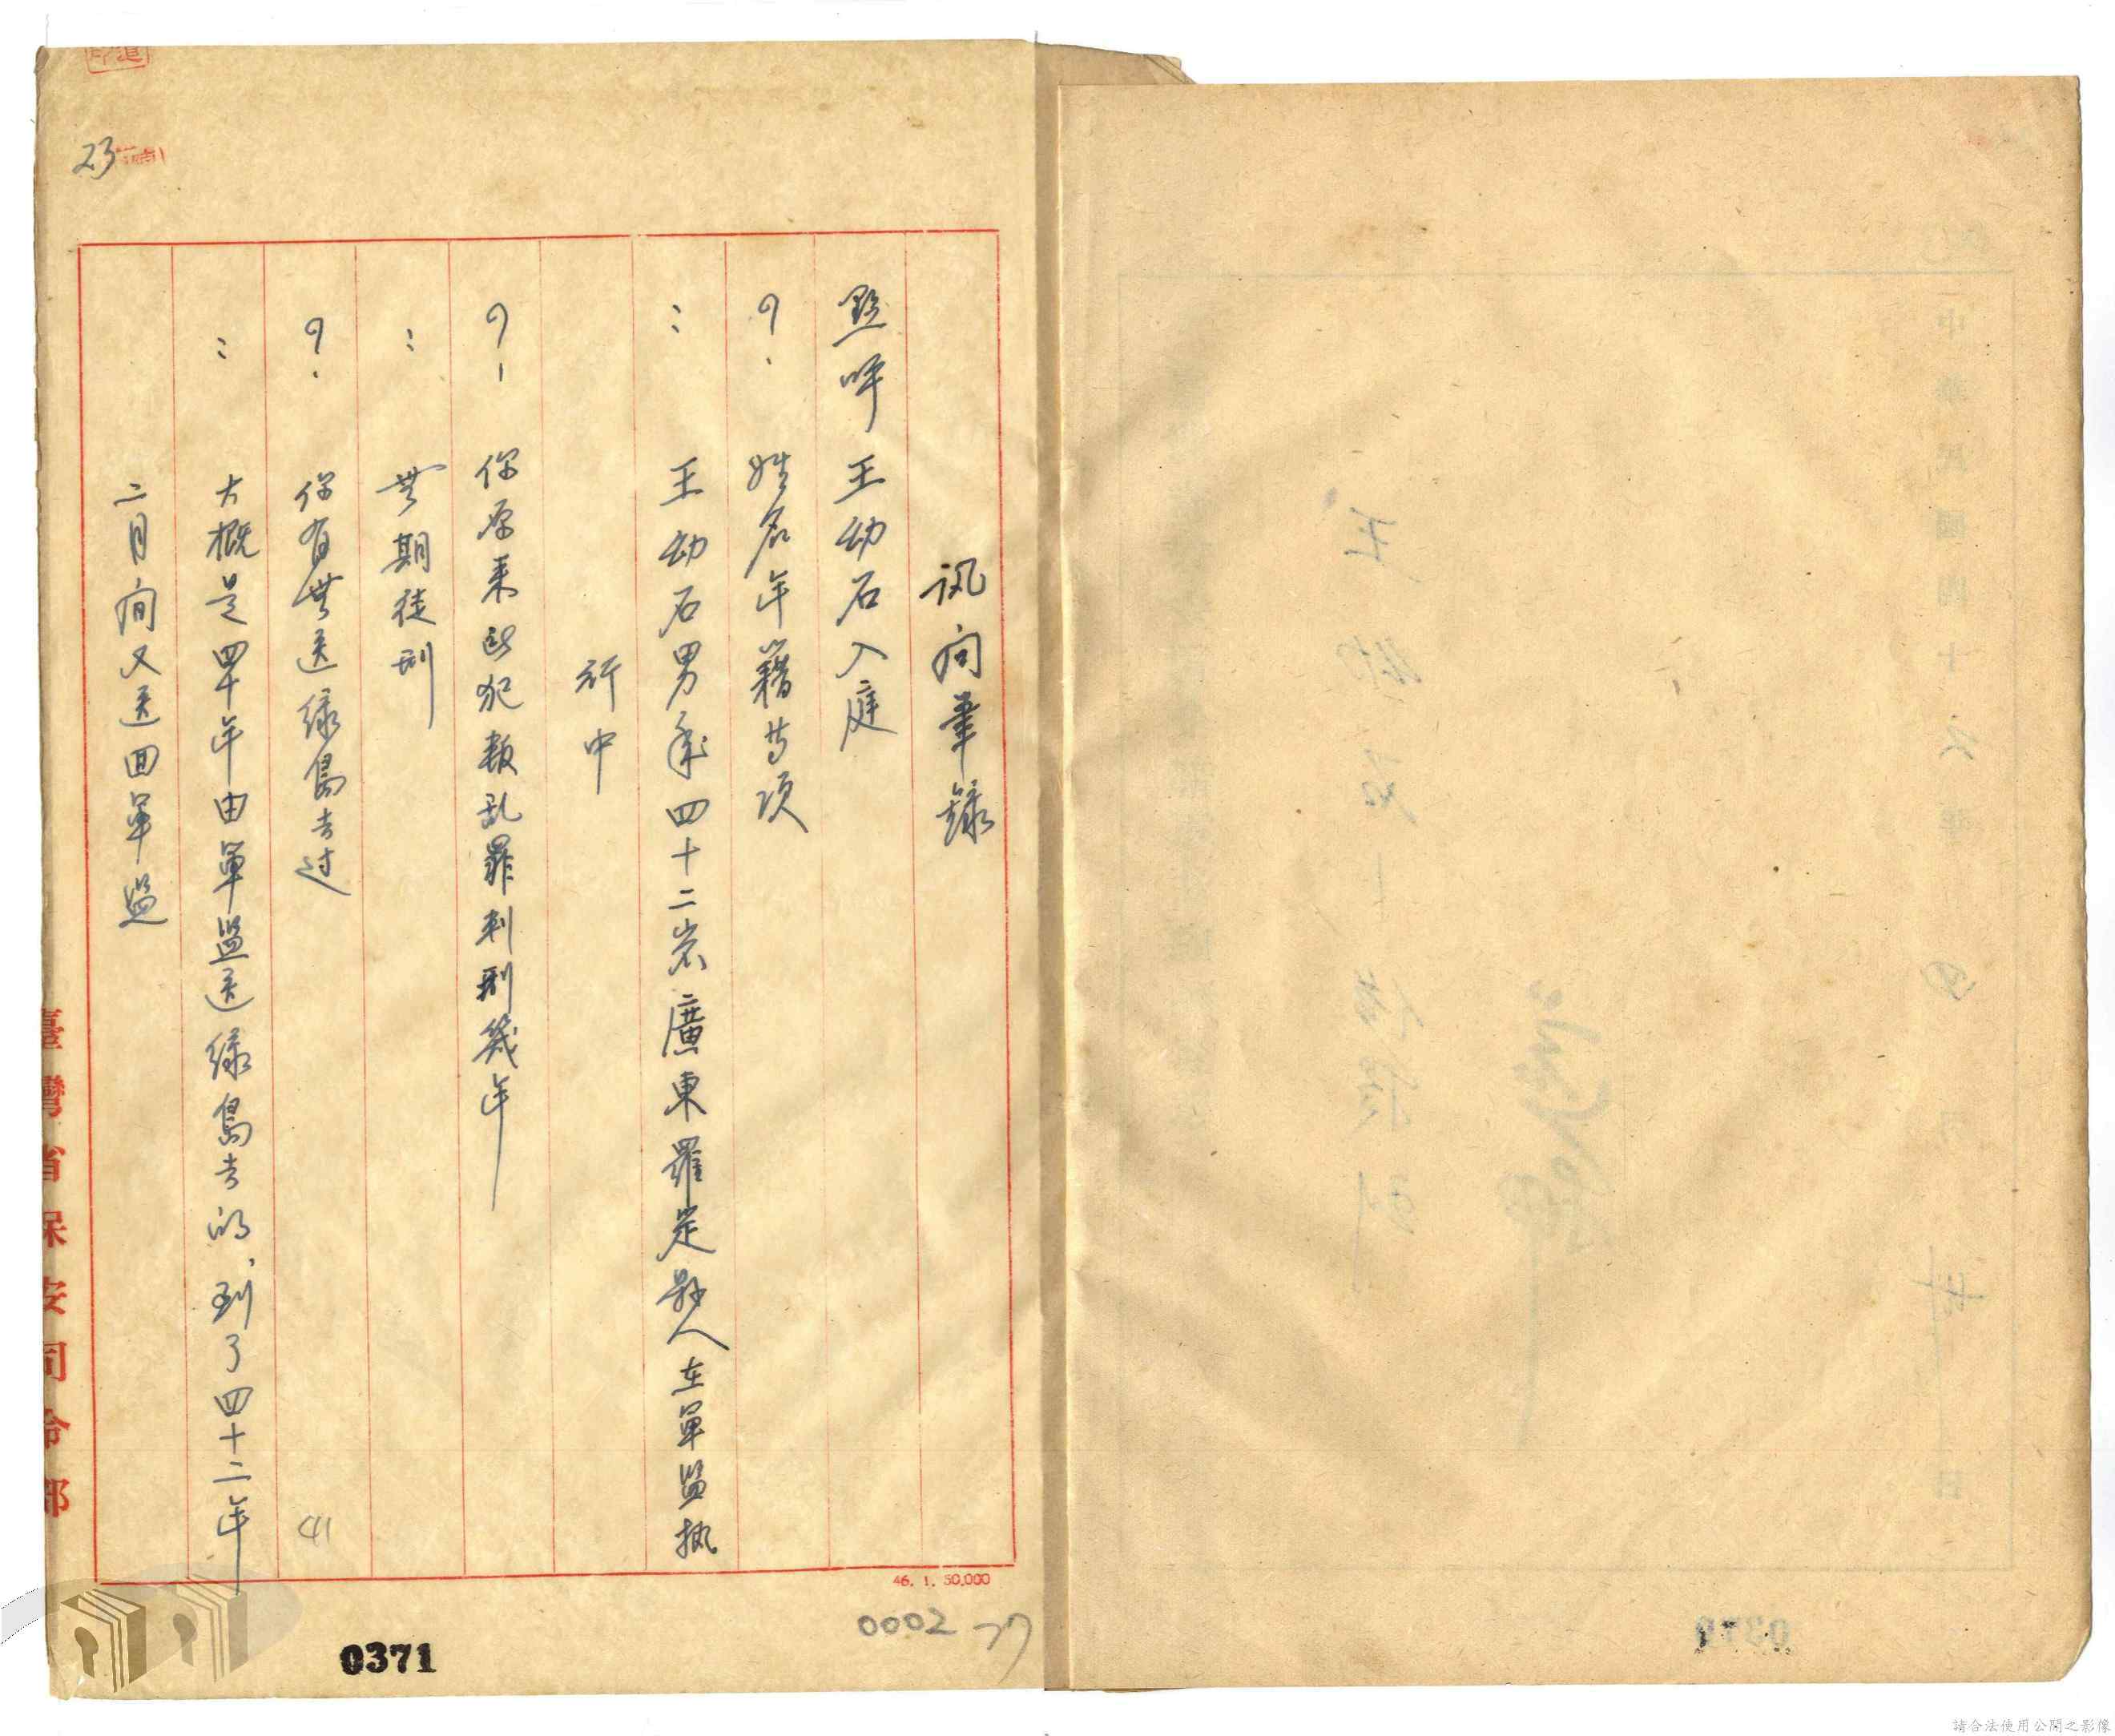 訊问筆録
點呼王幼石入庭
？．姓名年籍等项
：王幼石男年四十二岁廣東羅定县人在軍監执
行中
？你原来因犯叛乱罪判刑幾年
：無期徒刑
？．你有無送绿島去过
：大概是四十年由軍監送绿島去的，到了四十二年
二月间又送回軍監
臺灣省保安司令部
23
41
46. 1. 50,000
0002
0371
中華民國四十六年 月 日
請合法使用公開之影像